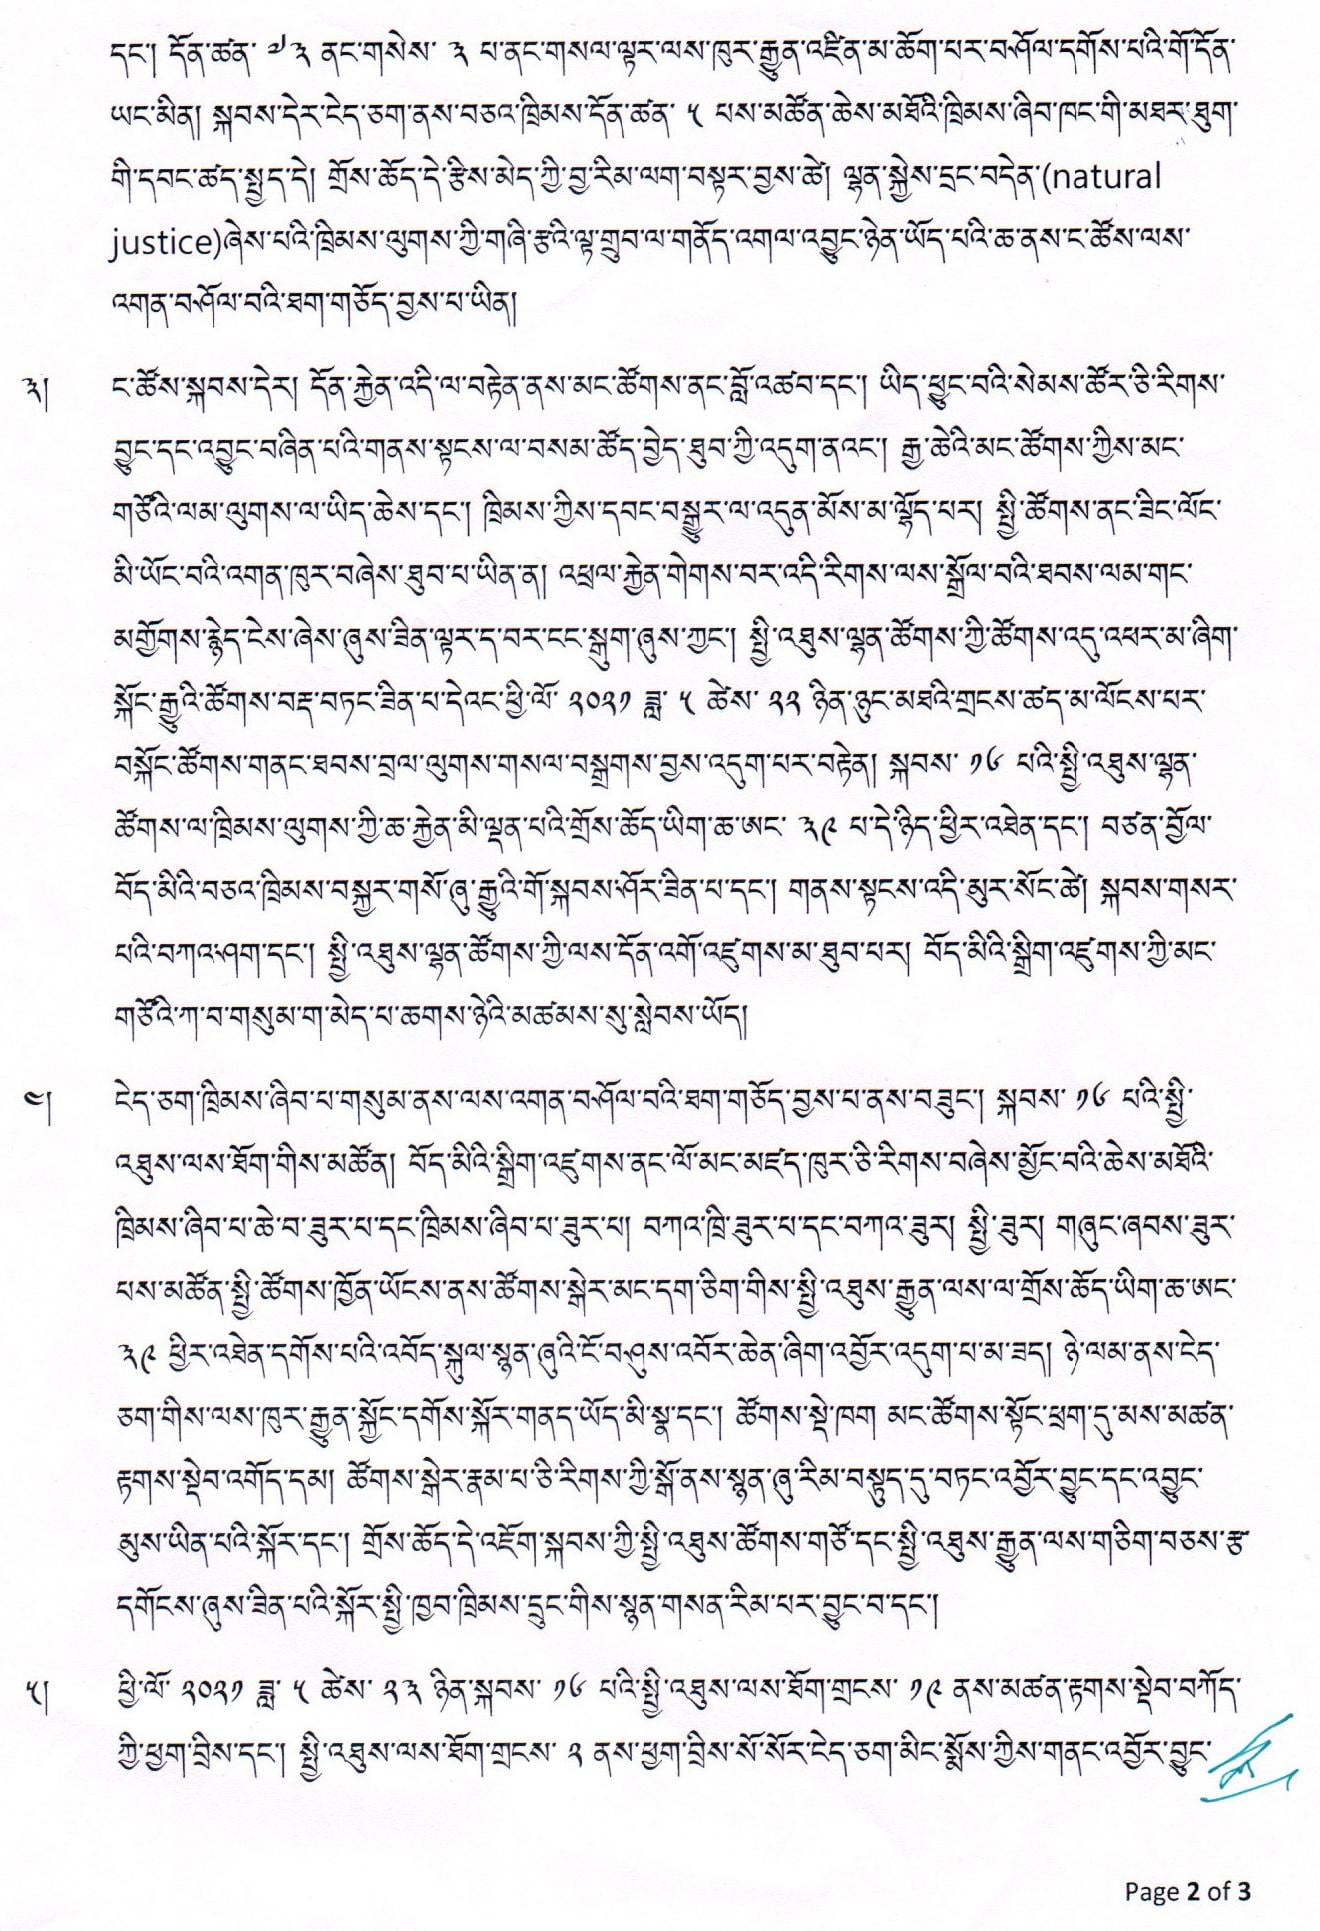 དང་། དོན་ཚན་ ༧༣ ནང་གསེས་ ༣ པ་ནང་གསལ་ལྟར་ལས་ཁུར་རྒྱུན་འཛིན་མ་ཆོག་པར་བཤོལ་དགོས་པའི་གོ་དོན་
ཡང་མིན། སྐབས་དེར་ངེད་ཅག་ནས་བཅའ་ཁྲིམས་དོན་ཚན་ ༥ པས་མཚོན་ཆེས་མཐོའི་ཁྲིམས་ཞིབ་ཁང་གི་མཐར་ཐུག་
གི་དབང་ཚད་སྤྱད་དེ། གྲོས་ཆོད་དེ་རྩིས་མེད་ཀྱི་བྱ་རིམ་ལག་བསྟར་བྱས་ཚེ། ལྷན་སྐྱེས་དྲང་བདེན་(natural
justice)ཞེས་པའི་ཁྲིམས་ལུགས་ཀྱི་གཞི་རྩའི་ལྟ་གྲུབ་ལ་གནོད་འགལ་འབྱུང་ཉེན་ཡོད་པའི་ཆ་ནས་ང་ཚོས་ལས་
འགན་བཤོལ་བའི་ཐག་གཅོད་བྱས་པ་ཡིན།
༣། ང་ཚོས་སྐབས་དེར། དོན་རྐྱེན་འདི་ལ་བརྟེན་ནས་མང་ཚོགས་ནང་བློ་འཚབ་དང་། ཡིད་ཕྱུང་བའི་སེམས་ཚོར་ཅི་རིགས་
བྱུང་དང་འབྱུང་བཞིན་པའི་གནས་སྟངས་ལ་བསམ་ཚོད་བྱེད་ཐུབ་ཀྱི་འདུག་ནའང་། རྒྱ་ཆེའི་མང་ཚོགས་ཀྱིས་མང་
གཙོའི་ལམ་ལུགས་ལ་ཡིད་ཆེས་དང་། ཁྲིམས་ཀྱིས་དབང་བསྒྱུར་ལ་འདུན་མོས་མ་ལྷོད་པར། སྤྱི་ཚོགས་ནང་ཟིང་ལོང་
མི་ཡོང་བའི་འགན་ཁུར་བཞེས་ཐུབ་པ་ཡིན་ན། འཕྲལ་རྐྱེན་གེགས་བར་འདི་རིགས་ལས་སྒྲོལ་བའི་ཐབས་ལམ་གང་
མགྱོགས་རྙེད་ངེས་ཞེས་ཞུས་ཟིན་ལྟར་ད་བར་ངང་སྒུག་ཞུས་ཀྱང་། སྤྱི་འཐུས་ལྷན་ཚོགས་ཀྱི་ཚོགས་འདུ་འཕར་མ་ཞིག་
སྐོང་རྒྱུའི་ཚོགས་བརྡ་བཏང་ཟིན་པ་དེའང་ཕྱི་ལོ་ ༢༠༢༡ ཟླ་ ༥ ཚེས་ ༢༢ ཉིན་ཉུང་མཐའི་གྲངས་ཚད་མ་ལོངས་པར་
བསྐོང་ཚོགས་གནང་ཐབས་བྲལ་ལུགས་གསལ་བསྒྲགས་བྱས་འདུག་པར་བརྟེན། སྐབས་ ༡༦ པའི་སྤྱི་འཐུས་ལྷན་
ཚོགས་ལ་ཁྲིམས་ལུགས་ཀྱི་ཆ་རྐྱེན་མི་ལྡན་པའི་གྲོས་ཆོད་ཡིག་ཆ་ཨང་ ༣༩ པ་དེ་ཉིད་ཕྱིར་འཐེན་དང་། བཙན་བྱོལ་
བོད་མིའི་བཅའ་ཁྲིམས་བསྐྱར་གསོ་ཞུ་རྒྱུའི་གོ་སྐབས་ཤོར་ཟིན་པ་དང་། གནས་སྟངས་འདི་མུར་སོང་ཚེ། སྐབས་གསར་
པའི་བཀའ་ཤག་དང་། སྤྱི་འཐུས་ལྷན་ཚོགས་ཀྱི་ལས་དོན་འགོ་འཛུགས་མ་ཐུབ་པར། བོད་མིའི་སྒྲིག་འཛུགས་ཀྱི་མང་
གཙོའི་ཀ་བ་གསུམ་ག་མེད་པ་ཆགས་ཉེའི་མཚམས་སུ་སླེབས་ཡོད།
༤། ངེད་ཅག་ཁྲིམས་ཞིབ་པ་གསུམ་ནས་ལས་འགན་བཤོལ་བའི་ཐག་གཅོད་བྱས་པ་ནས་བཟུང་། སྐབས་ ༡༦ པའི་སྤྱི་
འཐུས་ལས་ཐོག་གིས་མཚོན། བོད་མིའི་སྒྲིག་འཛུགས་ནང་ལོ་མང་མཛད་ཁུར་ཅི་རིགས་བཞེས་མྱོང་བའི་ཆེས་མཐོའི་
ཁྲིམས་ཞིབ་པ་ཆེ་བ་ཟུར་པ་དང་ཁྲིམས་ཞིབ་པ་ཟུར་པ། བཀའ་ཁྲི་ཟུར་པ་དང་བཀའ་ཟུར། སྤྱི་ཟུར། གཞུང་ཞབས་ཟུར་
པས་མཚོན་སྤྱི་ཚོགས་ཁྱོན་ཡོངས་ནས་ཚོགས་སྒེར་མང་དག་ཅིག་གིས་སྤྱི་འཐུས་རྒྱུན་ལས་ལ་གྲོས་ཆོད་ཡིག་ཆ་ཨང་
༣༩ ཕྱིར་འཐེན་དགོས་པའི་འབོད་སྐུལ་སྙན་ཞུའི་ངོ་བཤུས་འབོར་ཆེན་ཞིག་འབྱོར་འདུག་པ་མ་ཟད། ཉེ་ལམ་ནས་ངེད་
ཅག་གིས་ལས་ཁུར་རྒྱུན་སྐྱོང་དགོས་སྐོར་གནད་ཡོད་མི་སྣ་དང་། ཚོགས་སྡེ་ཁག མང་ཚོགས་སྟོང་ཕྲག་དུ་མས་མཚན་
རྟགས་སྡེབ་འགོད་དམ། ཚོགས་སྒེར་རྣམ་པ་ཅི་རིགས་ཀྱི་སྒོ་ནས་སྙན་ཞུ་རིམ་བསྟུད་དུ་བཏང་འབྱོར་བྱུང་དང་འབྱུང་
མུས་ཡིན་པའི་སྐོར་དང་། གྲོས་ཆོད་དེ་འཇོག་སྐབས་ཀྱི་སྤྱི་འཐུས་ཚོགས་གཙོ་དང་སྤྱི་འཐུས་རྒྱུན་ལས་གཅིག་བཅས་རྩ་
དགོངས་ཞུས་ཟིན་པའི་སྐོར་སྤྱི་ཁྱབ་ཁྲིམས་དྲུང་གིས་སྙན་གསན་རིམ་པར་བྱུང་བ་དང་།
༥། ཕྱི་ལོ་ ༢༠༢༡ ཟླ་ ༥ ཚེས་ ༢༣ ཉིན་སྐབས་ ༡༦ པའི་སྤྱི་འཐུས་ལས་ཐོག་གྲངས་ ༡༩ ནས་མཚན་རྟགས་སྡེབ་བཀོད་
ཀྱི་ཕྱག་བྲིས་དང་། སྤྱི་འཐུས་ལས་ཐོག་གྲངས་ ༢ ནས་ཕྱག་བྲིས་སོ་སོར་ངེད་ཅག་མིང་སྨོས་ཀྱིས་གནང་འབྱོར་བྱུང་
Page 2 of 3